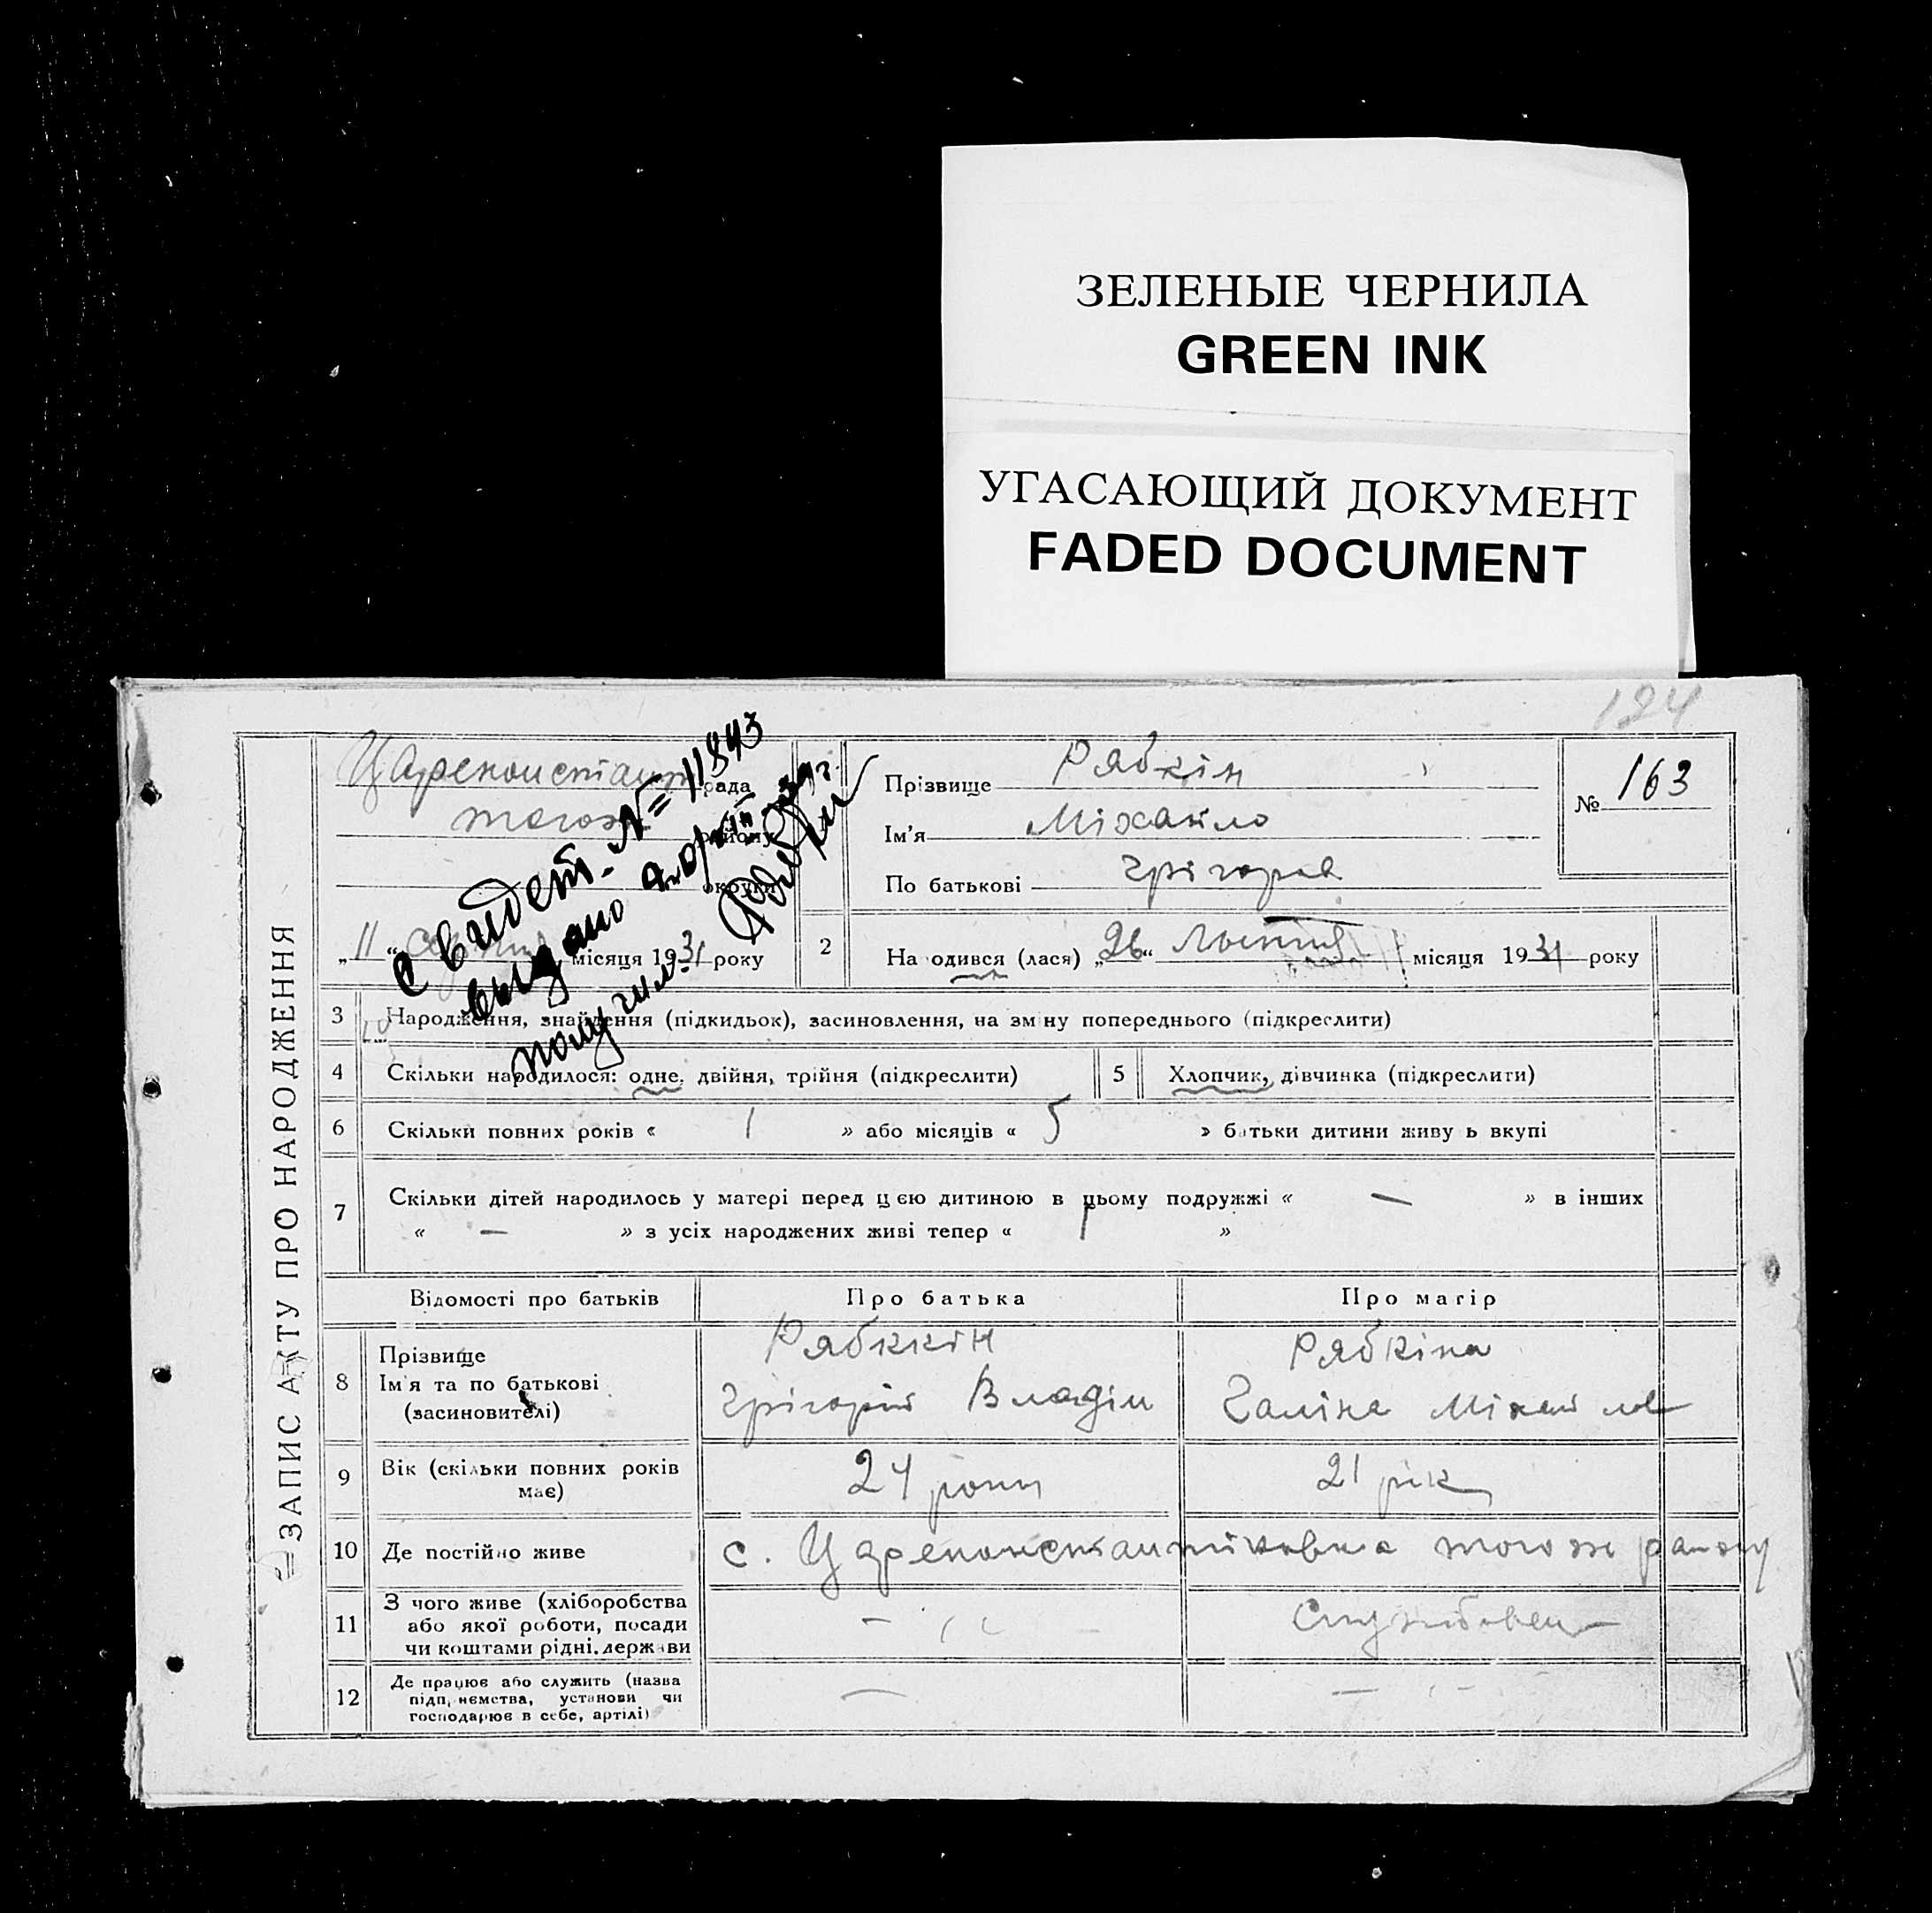 ЗЕЛЕНЫЕ ЧЕРНИЛА
GREEN INK
УГАСАЮЩИЙ ДОКУМЕНТ
FADED DOCUMENT
124
ЗАПИС АКТУ ПРО НАРОДЖЕННЯ
Цареконстант рада
району
округи
„11“ місяця 1931 року
Свидет. №=11843
выдано
получил
Прізвище Рябкін
Ім'я Міхайло
По батькові Грігоров
№ 163
2 На одився (лася) „26“ місяця 1931 року
3 Народження, знайдення (підкидьок), засиновлення, на зміну попереднього (підкреслити)
4 Скільки народилося: одне, двійня, трійня (підкреслити) 5 Хлопчик, дівчинка (підкреслити)
6 Скільки повних років « 1 » або місяців « 5 » батьки дитини живу ь вкупі
7 Скільки дітей народилось у матері перед цією дитиною в цьому подружжі « — » в інших
« — » з усіх народжених живі тепер « 1 »
Відомості про батьків Про батька Про матір
8 Прізвище Рябккін Рябкіна
Ім'я та по батькові Грігорій Владім Галіна Міхайлов
(засиновителі)
9 Вік (скільки повних років має) 24 роки 21 рік
10 Де постійно живе с. Цареконстантіновка того ж району
11 З чого живе (хліборобства Службовец
або якої роботи, посади
чи коштами рідні, держави
12 Де працює або служить (назва — —
підп,иємства, установи чи
господарює в себе, артілі)